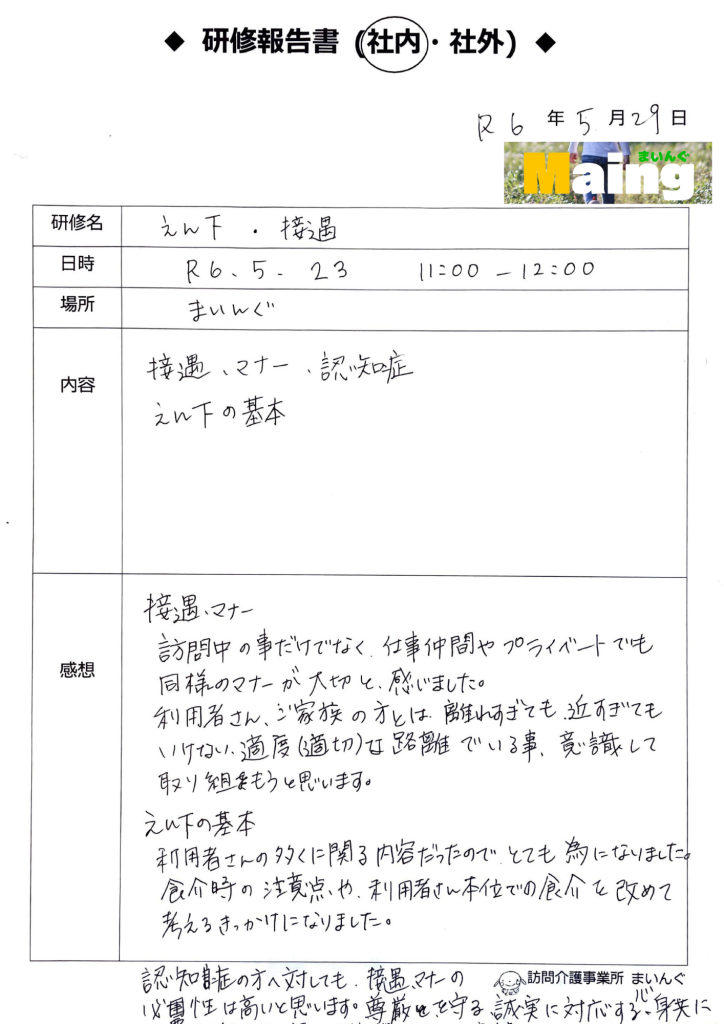 ◆ 研修報告書 (社内・社外) ◆
R6年5月29日
Maing まいんぐ
研修名 えん下・接遇
日時 R6.5.23 11:00-12:00
場所 まいんぐ
内容
接遇、マナー、認知症
えん下の基本
感想
接遇、マナー
訪問中の事だけでなく、仕事仲間やプライベートでも
同様のマナーが大切と、感じました。
利用者さん、ご家族の方とは、離れすぎても、近すぎても
いけない、適度(適切)な路離でいる事、意識して
取り組もうと思います。
えん下の基本
利用者さんの多くに関る内容だったので、とても為になりました。
食介時の注意点、や、利用者さん本位での食介を改めて
考えるきっかけになりました。
認知症の方へ対しても、接遇、マナーの
必要性は高いと思います。尊厳を守る、誠実に対応する、身失に
訪問介護事業所 まいんぐ